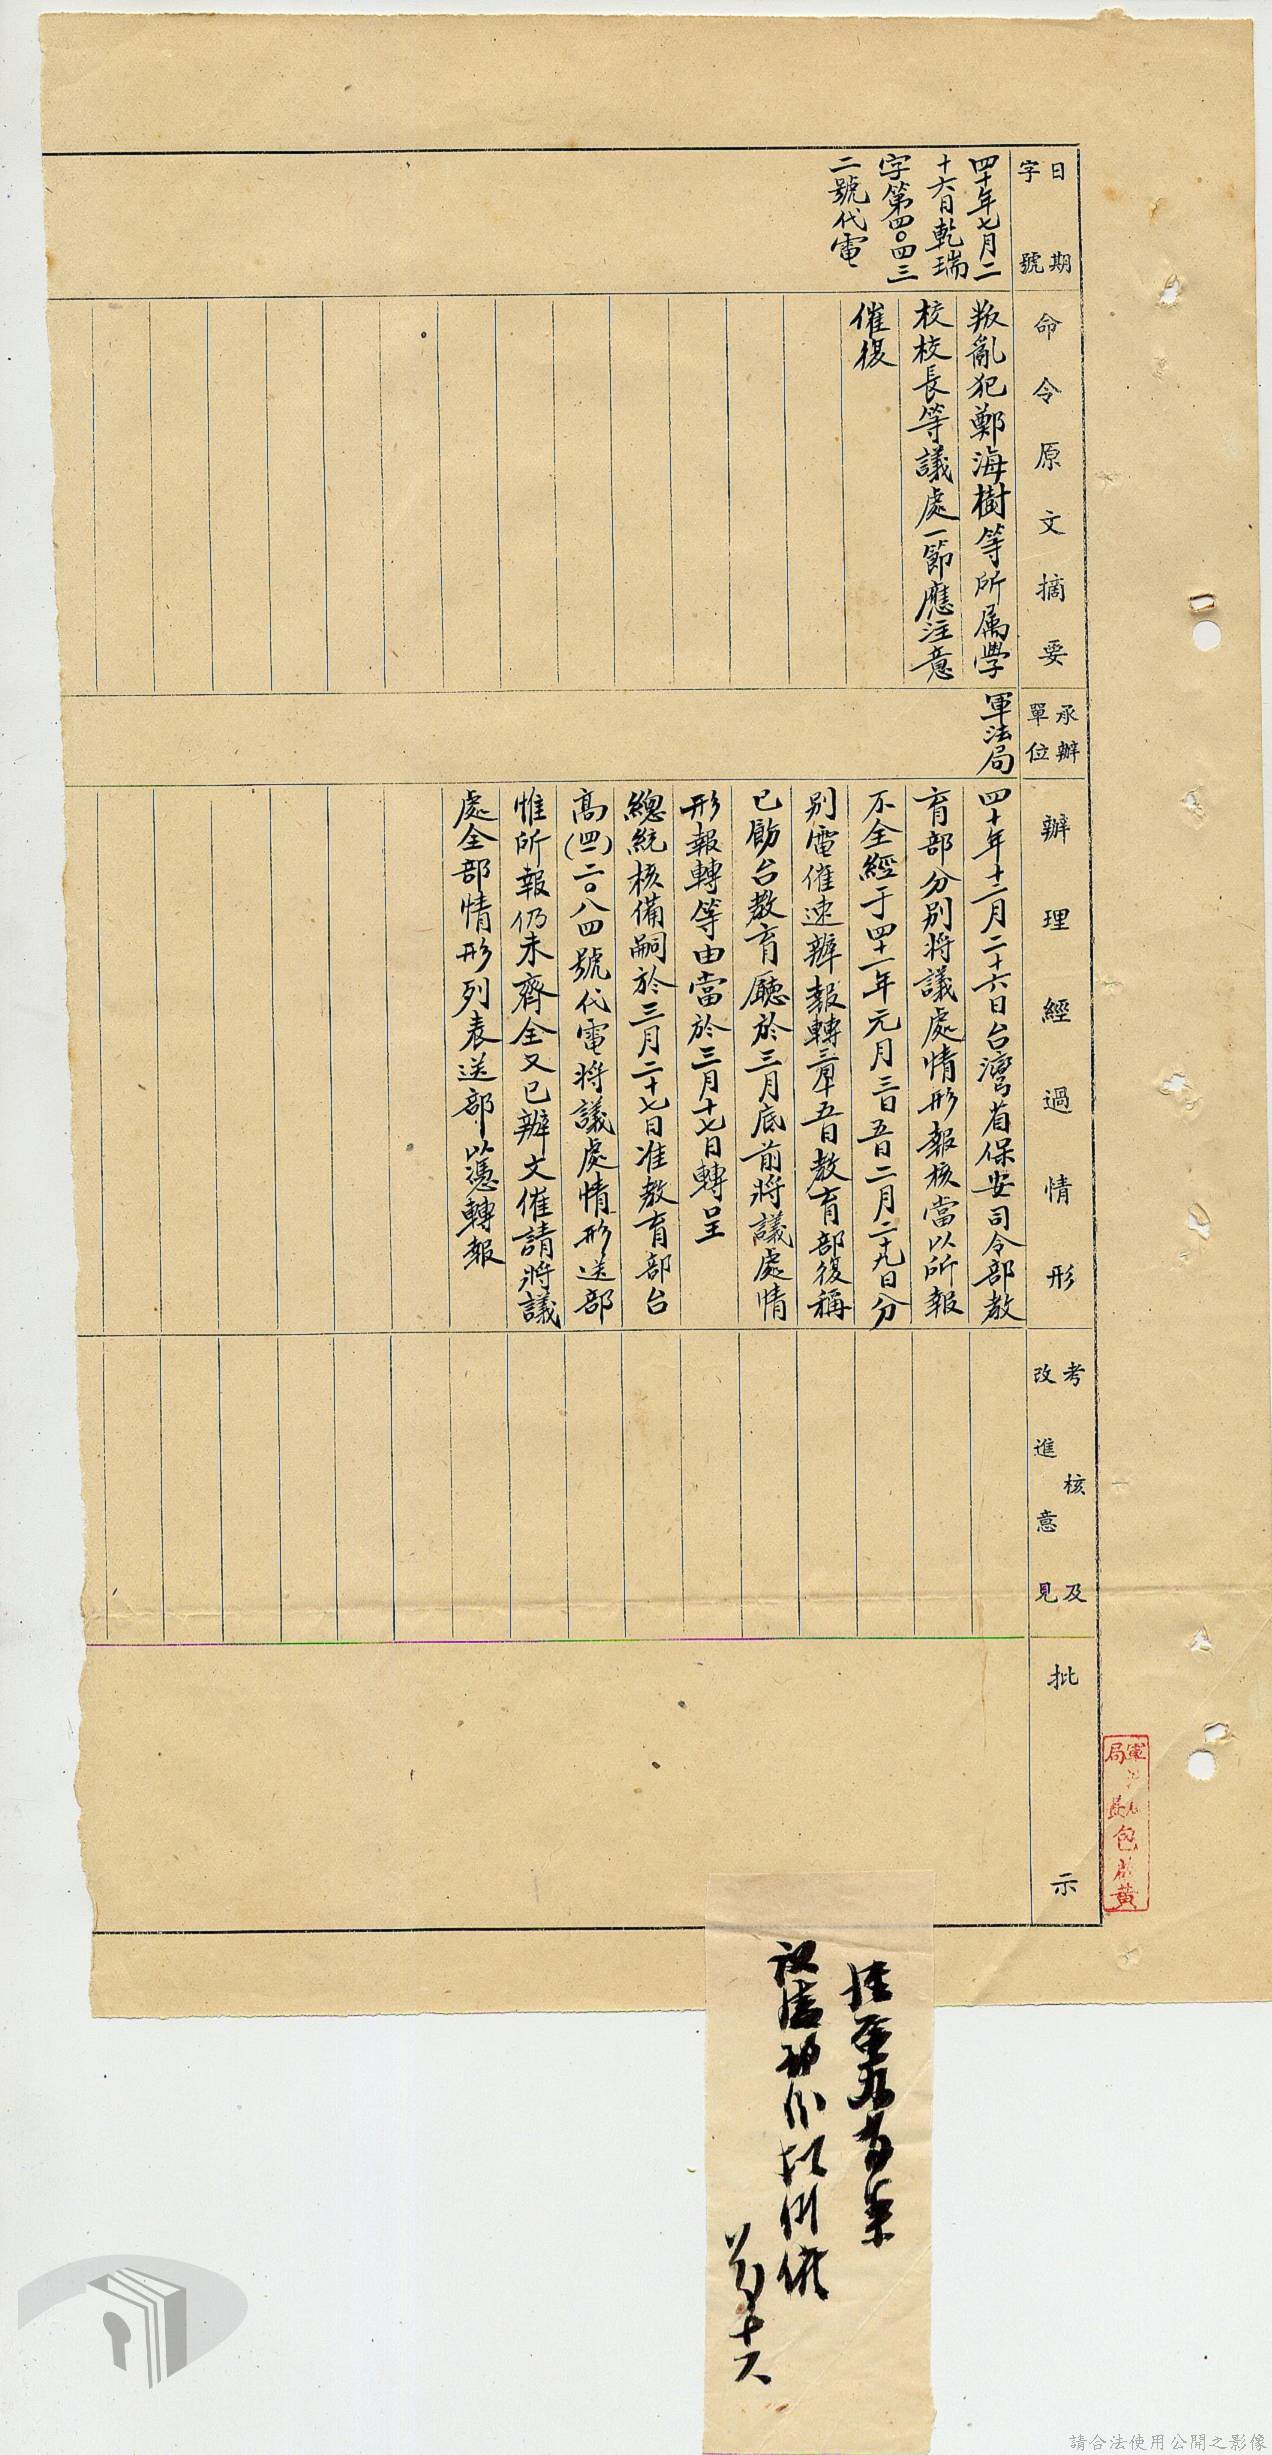 日期
字號
四十年七月二
十六日乾瑞
字第四〇四三
二號代電
命令原文摘要
叛亂犯鄭海樹等所屬學
校校長等議處一節應注意
催復
承辦
單位
軍法局
辦理經過情形
四十年十二月二十六日台灣省保安司令部教
育部分別將議處情形報核當以所報
不全經于四十一年元月三日五日二月二十九日分
別電催速辦報轉三月五日教育部復稱
已飭台教育廳於三月底前將議處情
形報轉等由當於三月十七日轉呈
總統核備嗣於三月二十七日准教育部台
高(四一)二〇八四號代電將議處情形送部
惟所報仍未齊全又已辦文催請將議
處全部情形列表送部以憑轉報
考核及
改進意見
批示
軍法局
包 黃
請合法使用公開之影像